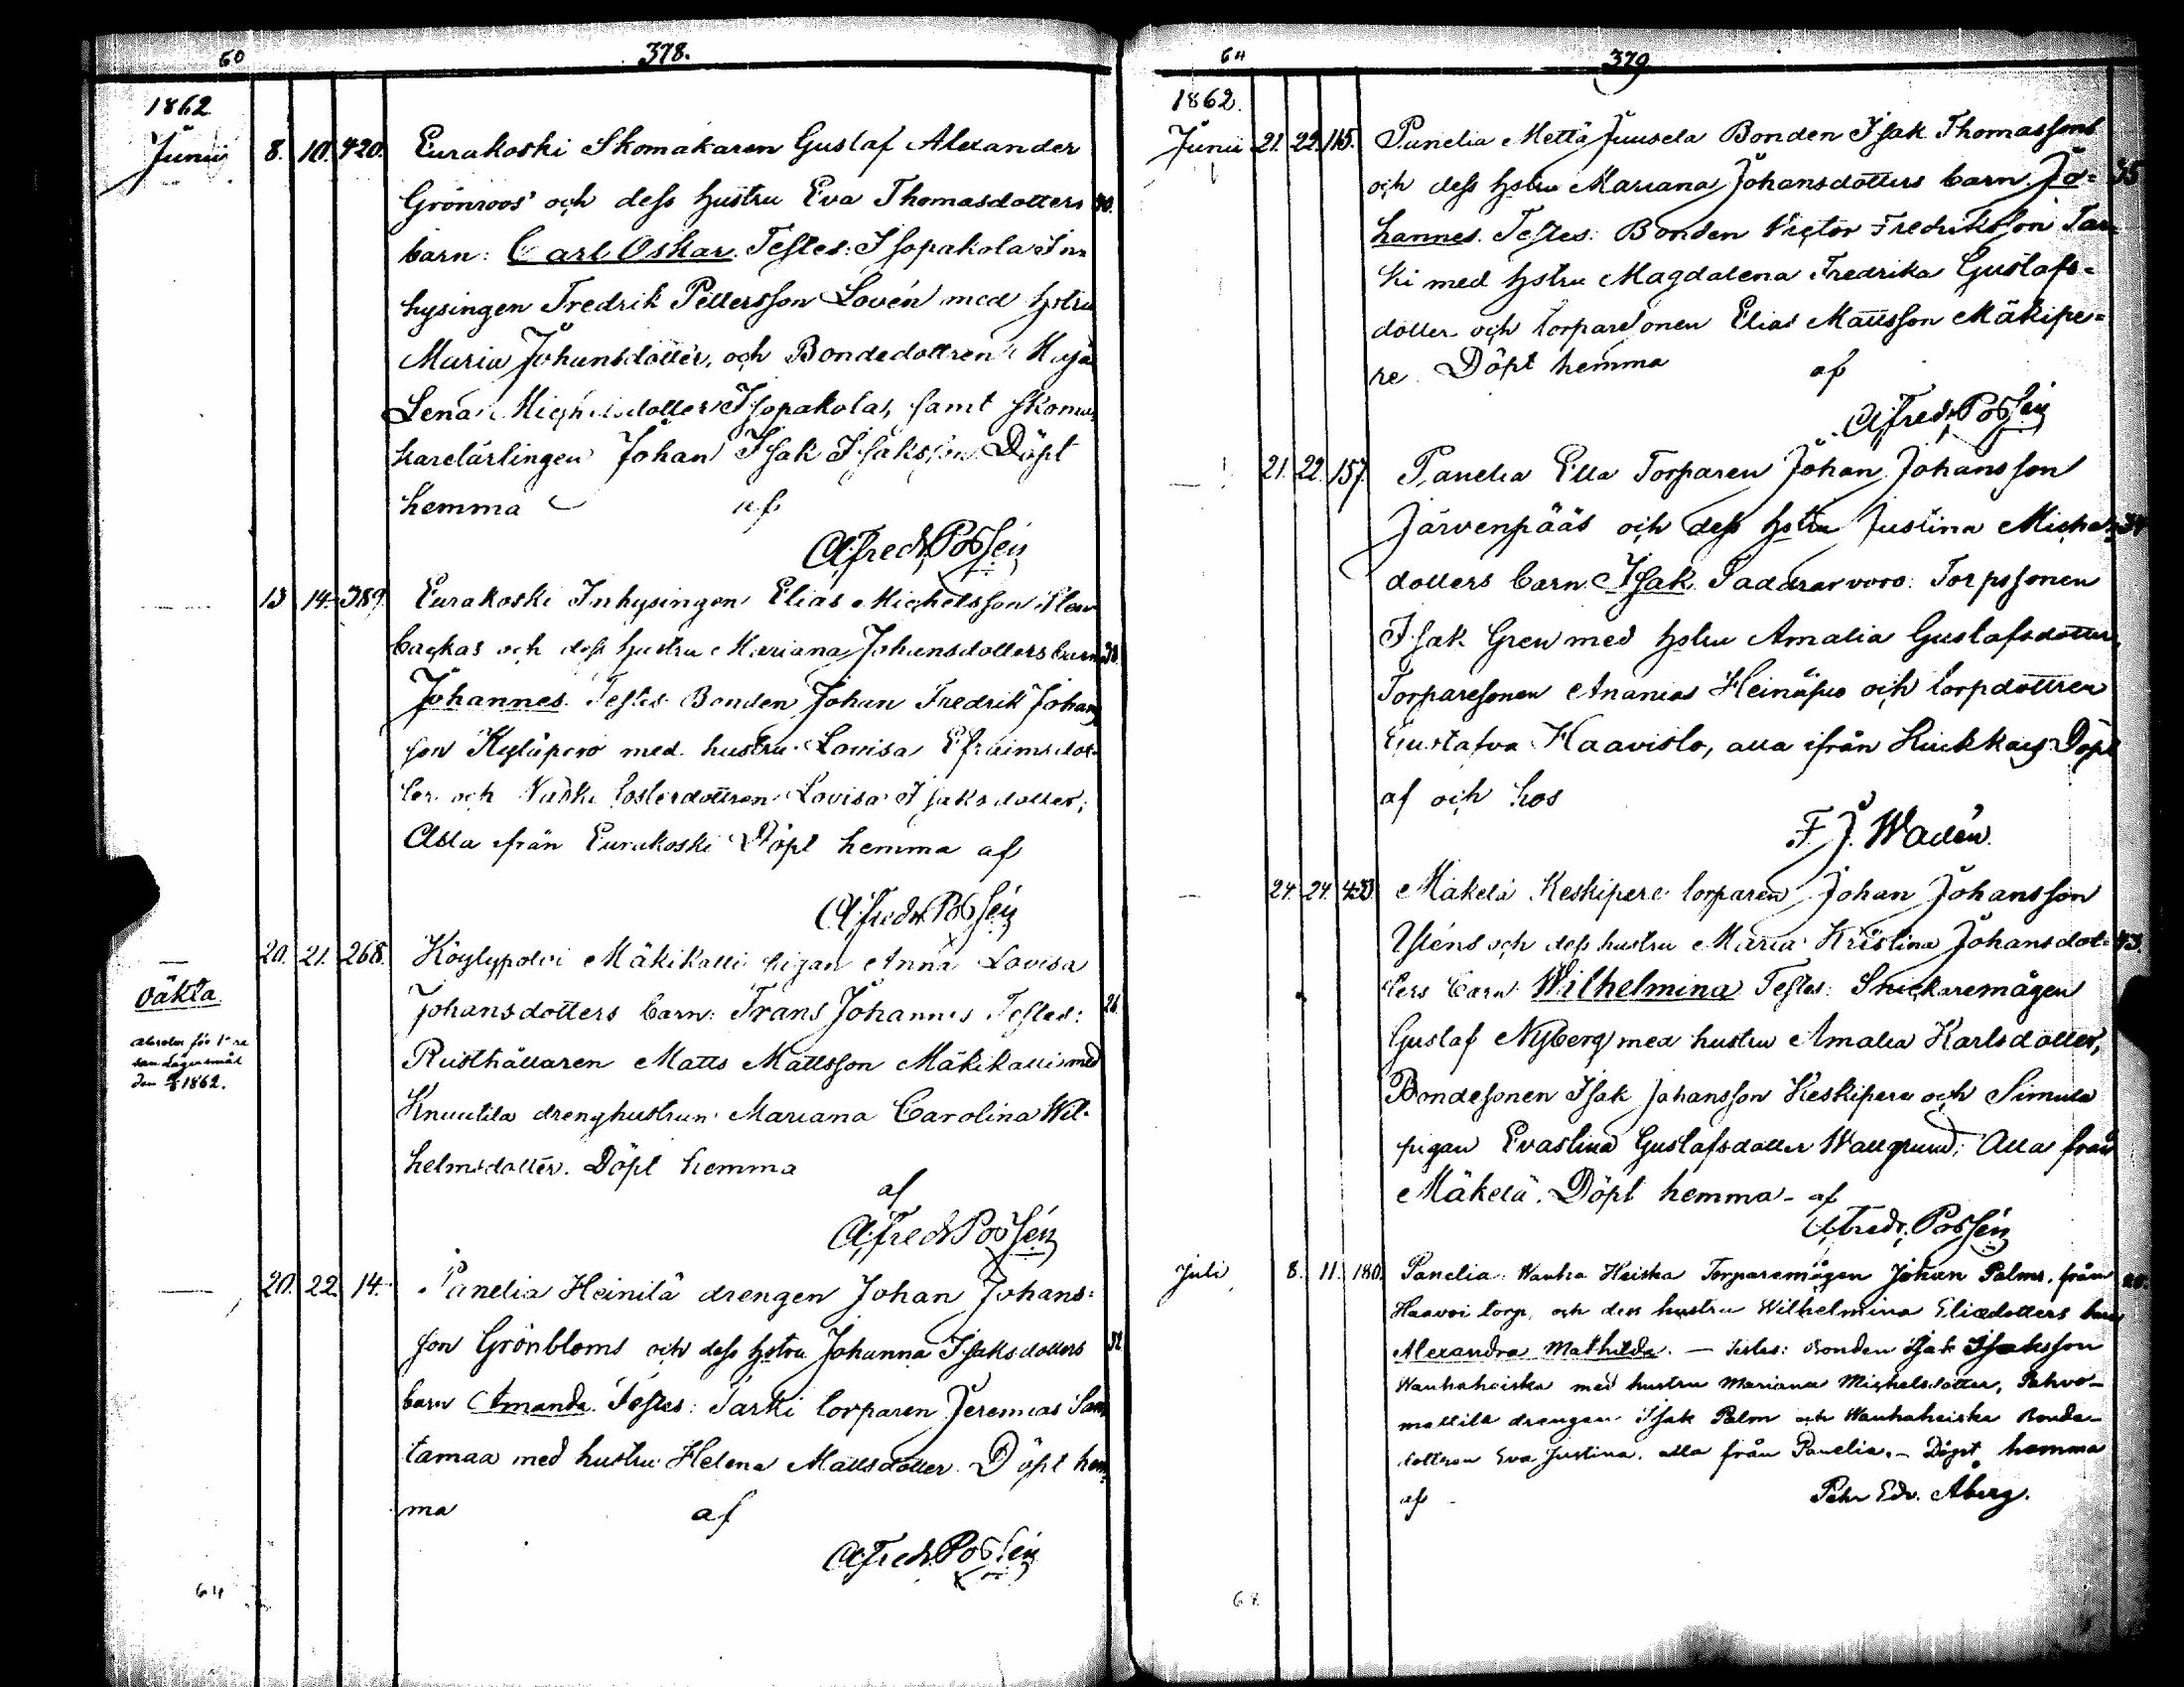 60
378.
1862
Junii 8. 10. 420. Eurakoski Skomakaren Gustaf Alexander
Grönroos' och dess hustru Eva Thomasdotters
barn: Carl Oskar. Testes: Isopakola In=
hysingen Fredrik Pettersson Lovén med hstru
Maria Johansdotter, och Bondedottren Kaja
Lena Michelsdotter Isopakola, samt skoma=
karelärlingen Johan Isak Isaksson. Döpt
hemma af
Alfred Possén
13 14 389. Eurakoski Inhysingen Elias Michelsson
backas och dess hustru Mariana Johansdotters barn 38.
Johannes. Testes Bonden Johan Fredrik Johans
son Kyläpero med hustru Lovisa Efraimsdot=
ter och fosterdottren Lovisa Isaksdotter,
Alla från Eurakoski Döpt hemma af
Alfred Possén
20. 21. 268. Köylypolvi Mäkikalli pigan Anna Lovisa
oäkta.
Johansdotters barn: Frans Johannes Testes: 26.
den 1862.
Rusthållaren Matts Mattsson Mäkikalli med
Knuutila drenghustrun Mariana Carolina Wil=
helmsdotter. Döpt hemma
af
Alfred Possén
20. 22. 14. Panelia Heinilä drengen Johan Johans=
son Grönbloms och dess hstru Johanna Isaksdotters 32.
barn Amanda. Testes: Tarki torparen Jeremias San
tamaa med hustru Helena Mattsdotter. Döpt hem=
ma af
Alfred Possén
64
64
379
1862.
Junii 21. 22. 115. Panelia Mettä Juusela Bonden Isak Thomassons
och dess hstru Mariana Johansdotters barn Jo= 35
hannes. Testes: Bonden Victor Fredriksson Tar=
ki med hstru Magdalena Fredrika Gustafs=
dotter och torparesonen Elias Mattsson Mäkipe=
re. Döpt hemma af
Alfred Possén
21. 22. 157. Panelia Ella Torparen Johan Johansson
Järvenpääs och dess hstru Justina Michels=
dotters barn Isak. Faddrar voro: Torpsonen
Isak Gren med hstru Amalia Gustafsdotter,
Torparesonen Ananias Heinäpuo och torpdottren
Gustafva Haavisto, alla ifrån Döpt
af och hos
F. J. Wadén.
24. 24. 433. Mäkelä Keskipere torparen Johan Johansson
Yléns och dess hustru Maria Kristina Johansdot= 43.
ters barn: Wilhelmina Testes: Snickaremågen
Gustaf Nyberg med hustru Amalia Karlsdotter,
Bondesonen Isak Johansson Keskipere och Simula
pigan Evastina Gustafsdotter Wallgrund; Alla från
Mäkelä. Döpt hemma - af
Alfred Possén
Juli 8. 11. 180. Panelia: Wanha Heiska Torparemågen Johan Palms, från
Haavoi torp, och dess hustru Wilhelmina Eliædotters barn
Alexandra Mathilda. — Testes: Bonden Isak Isaksson
Wanhaheiska med hustru Mariana Michelsdotter, Pahvo-
mattila drengen Isak Palm och Wanhaheiska Bonde-
dottren Eva Justina, alla från Panelia. — Döpt hemma
af Pehr Edv. Åberg.